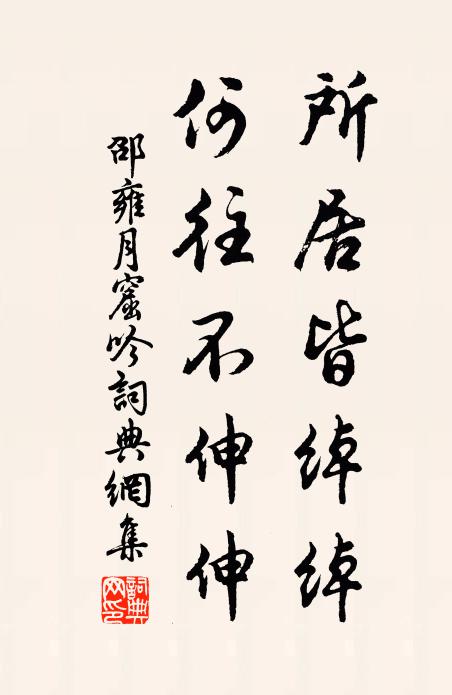 所居皆綽綽
何往不伸伸
邵雍月窟吟詞典網集
詞典网印